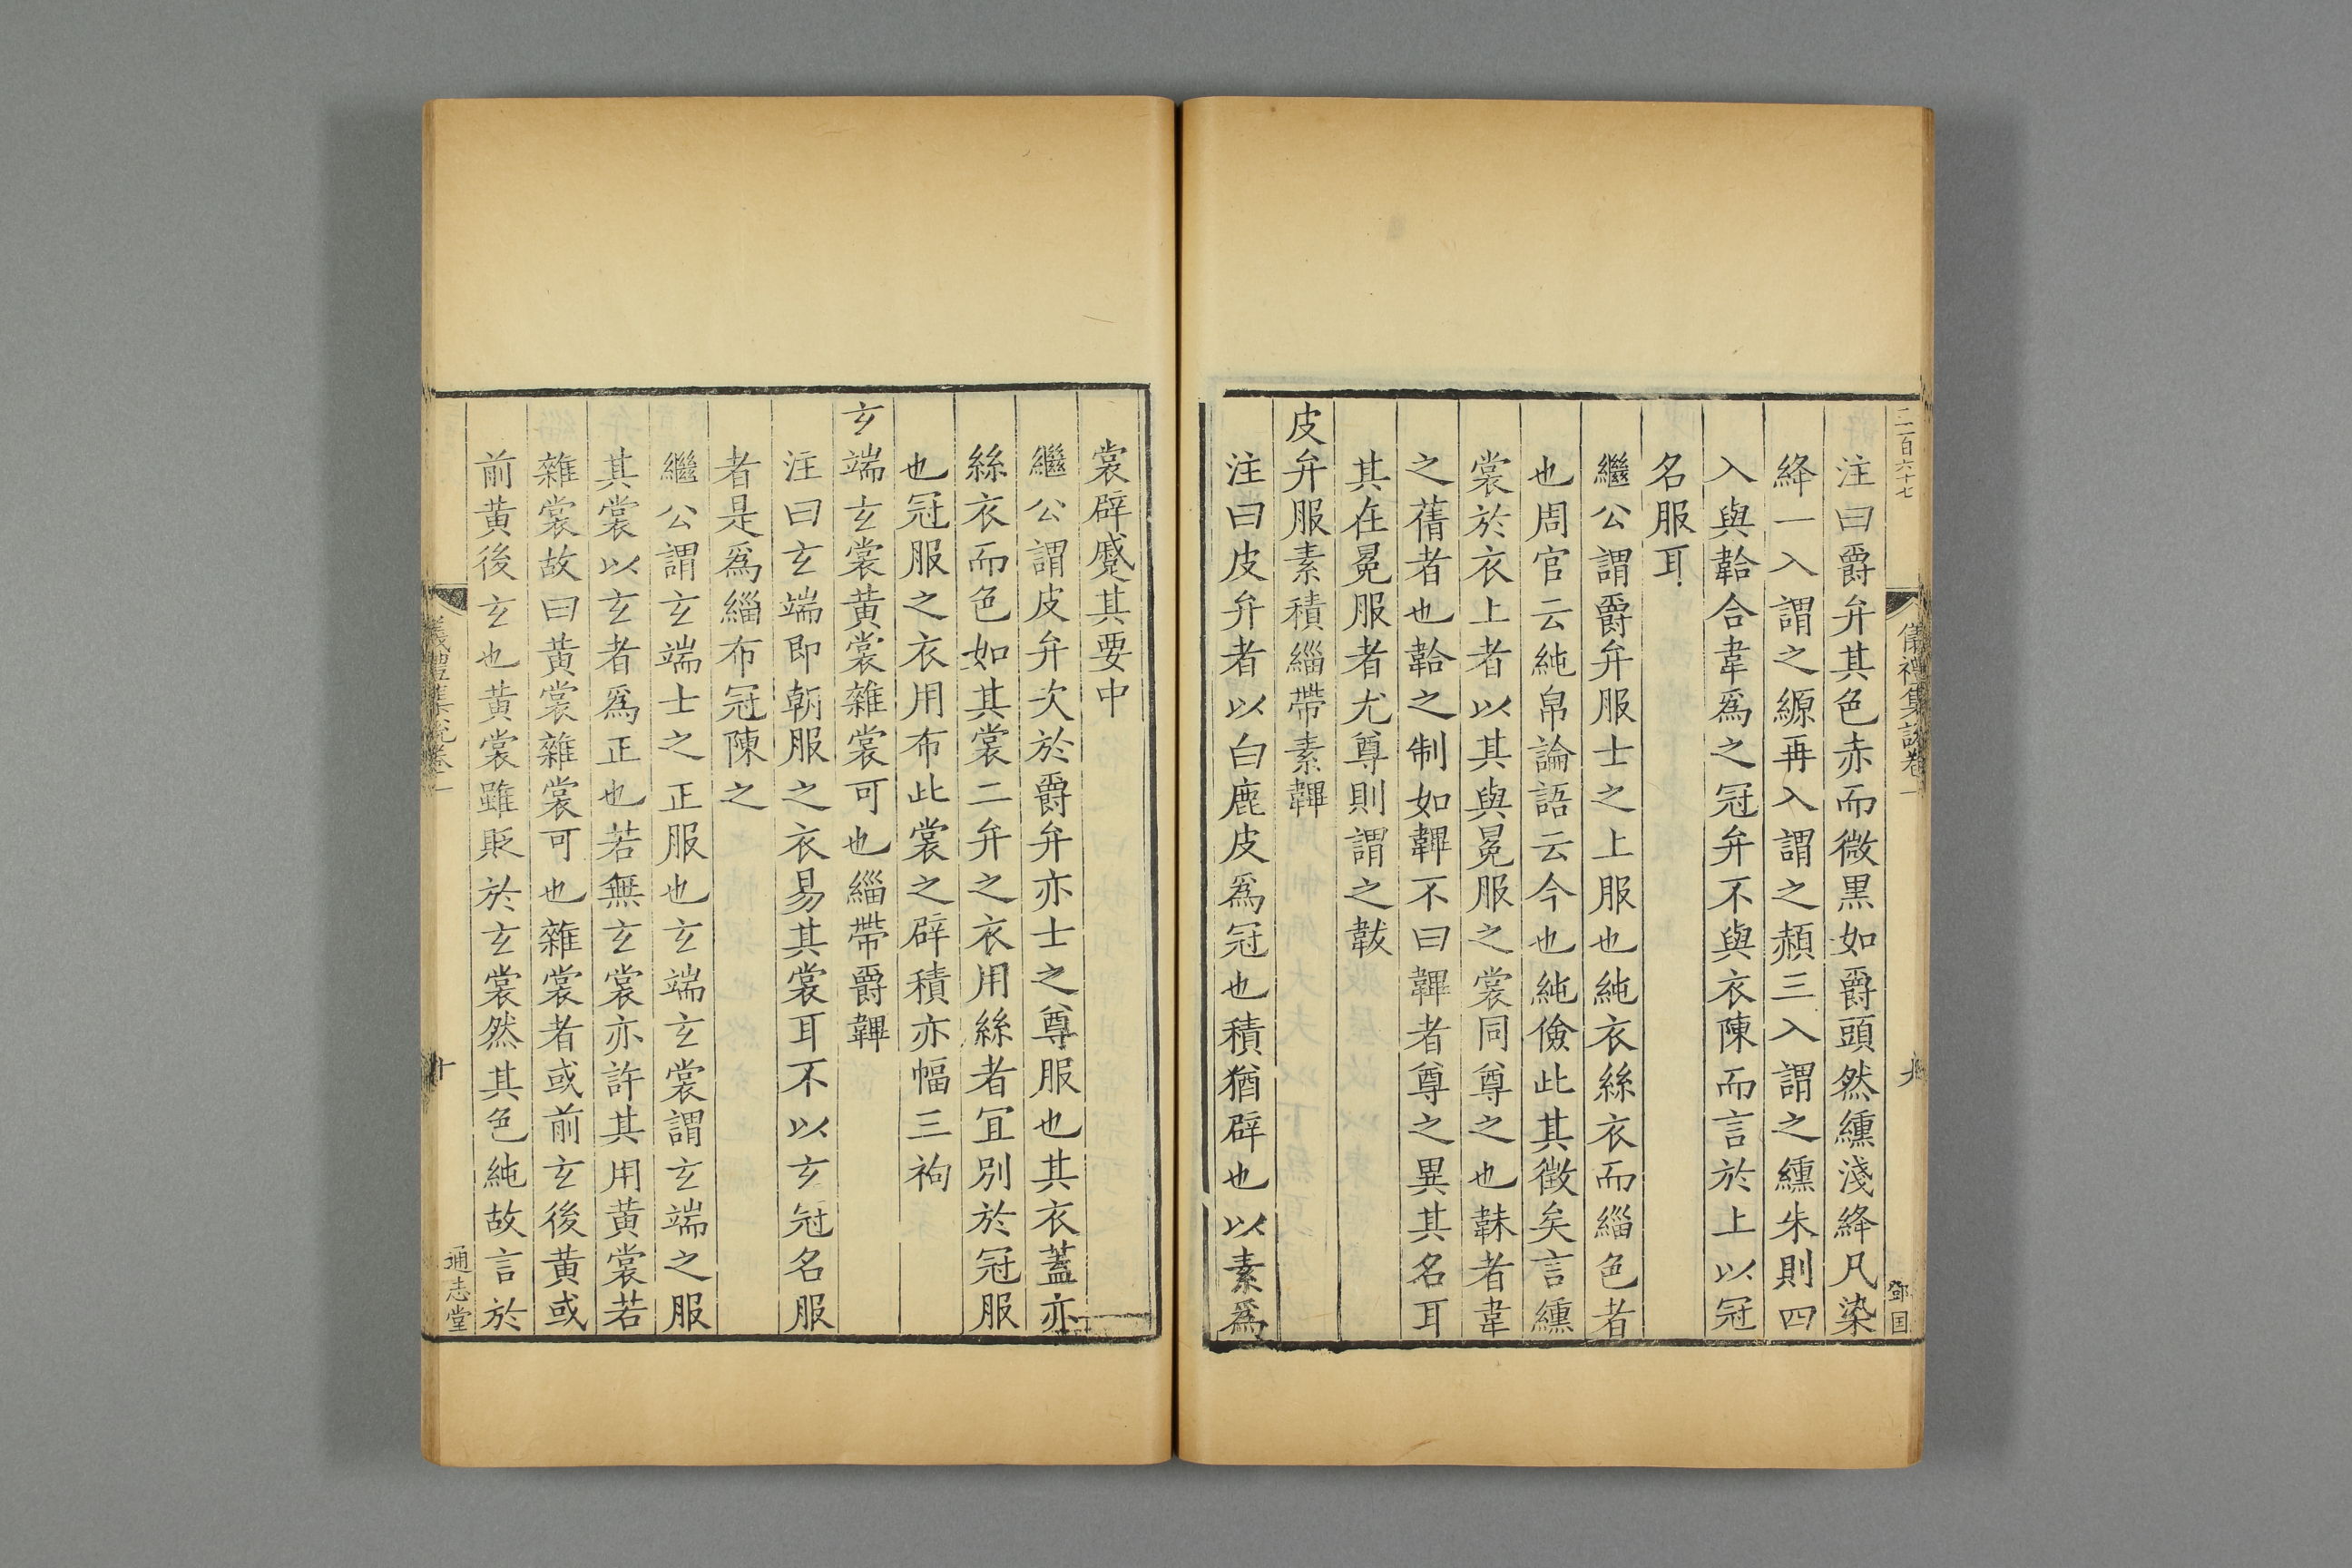 二百六十七
儀禮集說卷一
九
鄧国
注曰爵弁其色赤而微黑如爵頭然纁淺絳凡染
絳一入謂之縓再入謂之赬三入謂之纁朱則四
入與韐合韋爲之冠弁不與衣陳而言於上以冠
名服耳
繼公謂爵弁服士之上服也純衣絲衣而緇色者
也周官云純帛論語云今也純儉此其徵矣言纁
裳於衣上者以其與冕服之裳同尊之也韎者韋
之蒨者也韐之制如韠不曰韠者尊之異其名耳
其在冕服者尤尊則謂之韍
皮弁服素積緇帶素韠
注曰皮弁者以白鹿皮爲冠也積猶辟也以素爲
裳辟蹙其要中
繼公謂皮弁次於爵弁亦士之尊服也其衣蓋亦
絲衣而色如其裳二弁之衣用絲者宜別於冠服
也冠服之衣用布此裳之辟積亦幅三袧
玄端玄裳黃裳雜裳可也緇帶爵韠
注曰玄端即朝服之衣易其裳耳不以玄冠名服
者是爲緇布冠陳之
繼公謂玄端士之正服也玄端玄裳謂玄端之服
其裳以玄者爲正也若無玄裳亦許其用黃裳若
雜裳故曰黃裳雜裳可也雜裳者或前玄後黃或
前黃後玄也黃裳雖貶於玄裳然其色純故言於
儀禮集說卷一
十
通志堂